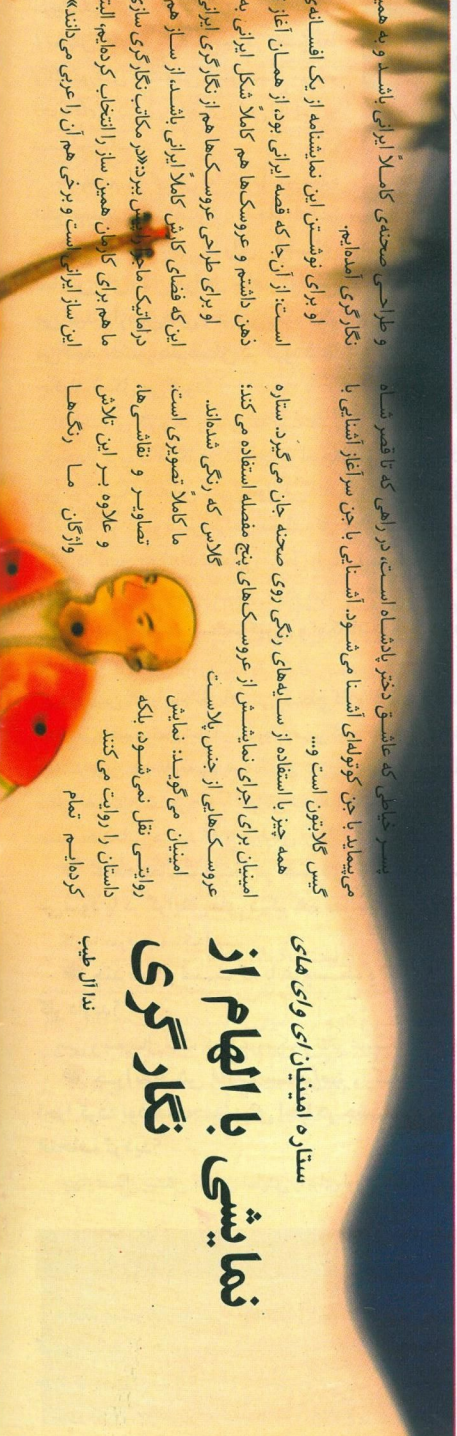 ستاره امینیان/ای وای های
نمایشی با الهام از
نگارگری
ندا آل طیب
پسر خیاطی که عاشق دختر پادشاه است، در راهی که تا قصر شاه
می‌پیماید با جن کوتوله‌ای آشنا می‌شود. آشنایی با جن سرآغاز آشنایی با
گیس گلابتون است و...
همه چیز با استفاده از سایه‌های رنگی روی صحنه جان می‌گیرد. ستاره
امینیان برای اجرای نمایشش از عروسک‌های پنج مفصله استفاده می‌کند؛
عروسک‌هایی از جنس پلاست گلاس که رنگی شده‌اند.
امینیان می‌گوید: نمایش ما کاملاً تصویری است.
روایتی نقل نمی‌شود، بلکه تصاویر و نقاشی‌ها،
داستان را روایت می‌کنند و علاوه بر این تلاش
کرده‌ایم تمام واژگان ما رنگ‌ها
و طراحی صحنه‌ی کاملاً ایرانی باشد و به
نگارگری آمده‌ایم.
او برای نوشتن این نمایشنامه از یک افسانه‌ی
است: از آن‌جا که قصه ایرانی بود، از همان آغاز
ذهن داشتم و عروسک‌ها هم کاملاً شکل ایرانی به
او برای طراحی عروسک‌ها هم از نگارگری ایرانی
این که فضای کارش کاملاً ایرانی باشد، از ساز هم
دراماتیک ماجرا پیش ببرد:«در مکاتب نگارگری سازی
ما هم برای کارمان همین ساز را انتخاب کرده‌ایم،
این ساز ایرانی است و برخی هم آن را عربی می‌دانند»